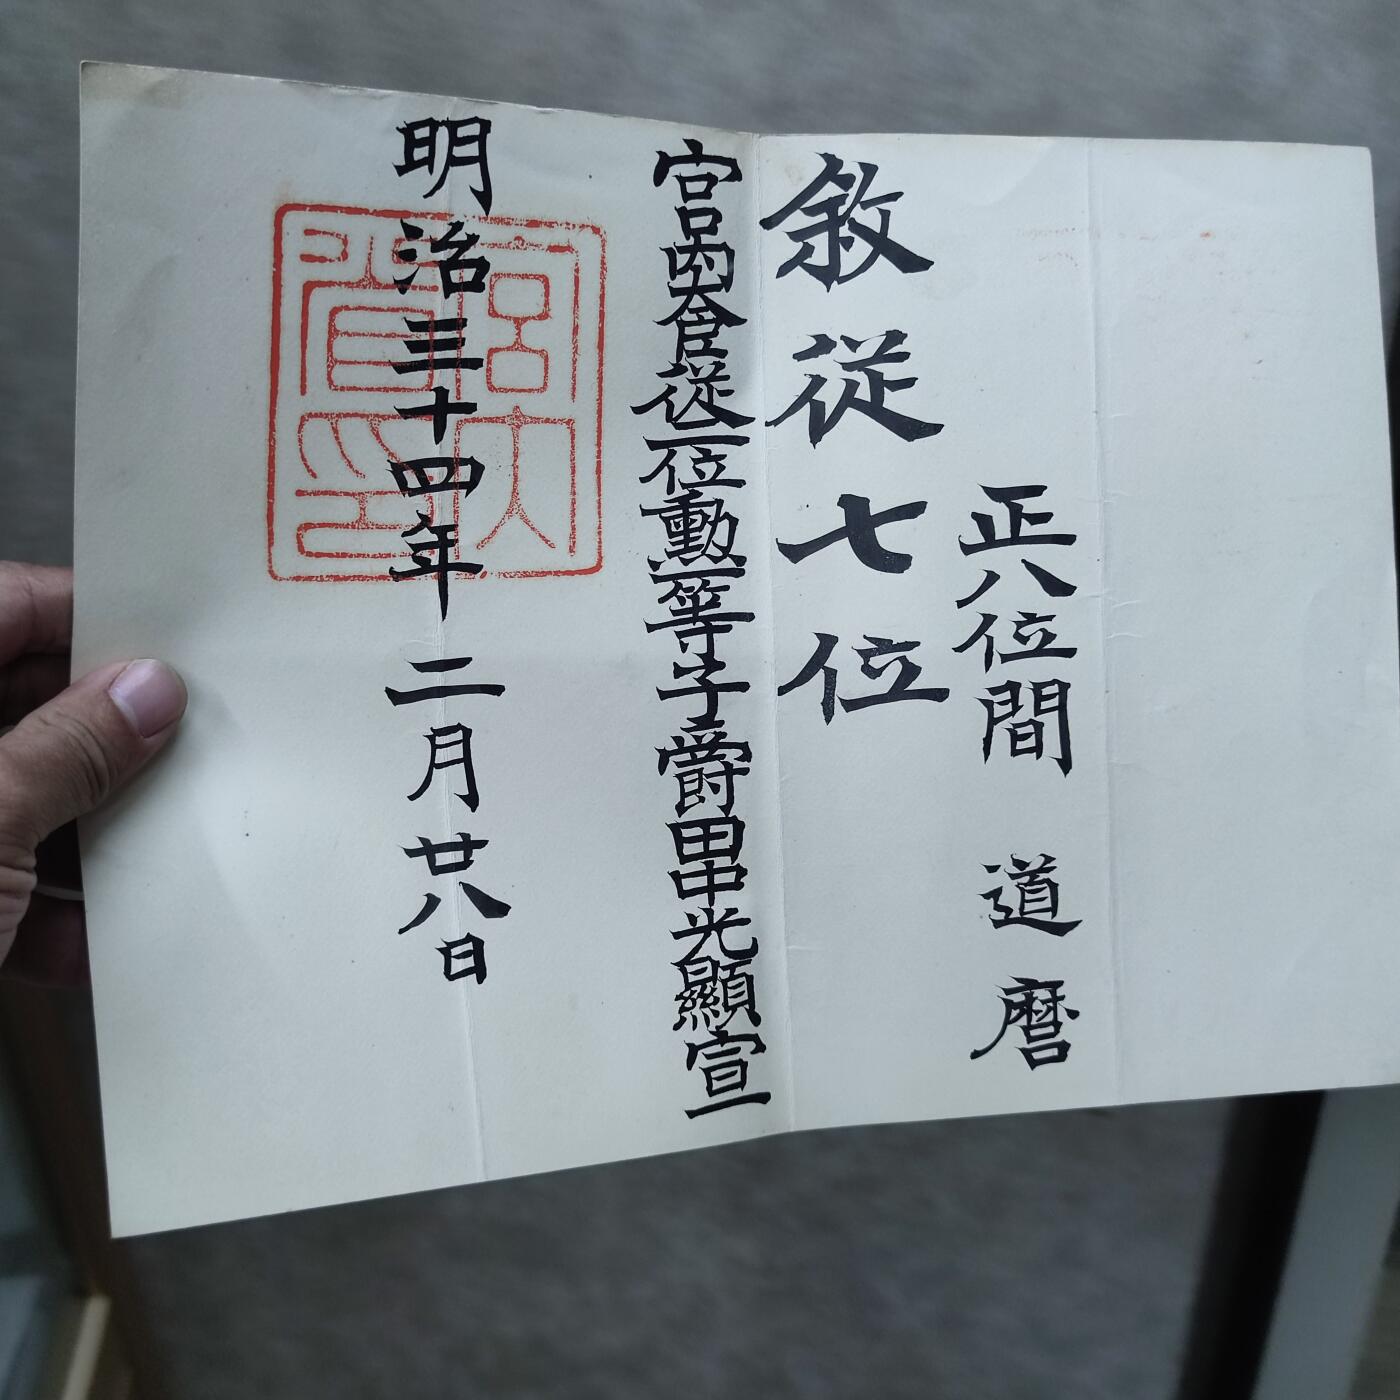 正八位間 道麿
敘從七位
宮内大臣從二位勳一等子爵田中光顯宣
明治三十四年二月廿八日
宮内省印